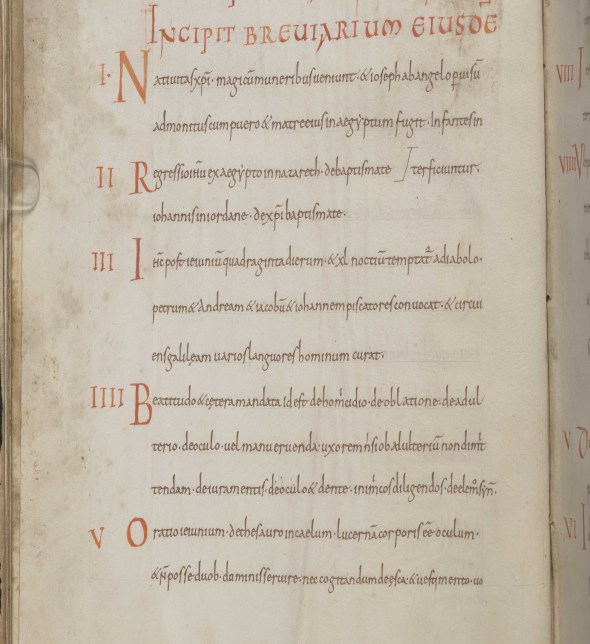 INCIPIT BREUIARIUM EIUSDĒ
I· Natiuitas xp̄i· magi cū muneribus ueniunt· & ioseph ab angelo p uisū
admonitus cum puero & matre eius in aegyptum fugit· Infantes in
II Regressio ih̄u ex aegypto in nazareth· de baptismate terficiuntur·
iohannis in iordane· de xp̄i baptismate·
III IHC post ieiuniū quadraginta dierum· & xl noctiū temptat̄ a diabolo·
petrum & Andream & iacobū & iohannem piscatores conuocat· & circui
ens galileam uarios languores hominum curat·
IIII Beatitudo & cetera mandata id est de homicidio· de oblatione· de adul
terio· de oculo· uel manu eruenda· uxorem nisi ob adulterium non dimit
tendam· de iuramentis· de oculo & dente· inimicos diligendos· de elemosyn̄·
V Oratio ieiunium· de thesauro in caelum· lucernā corporis ēē oculum·
& n̄ posse duob· dominis seruire· nec cogitandum de esca· & uestimento· uo
VIII
VIIII
V
VI